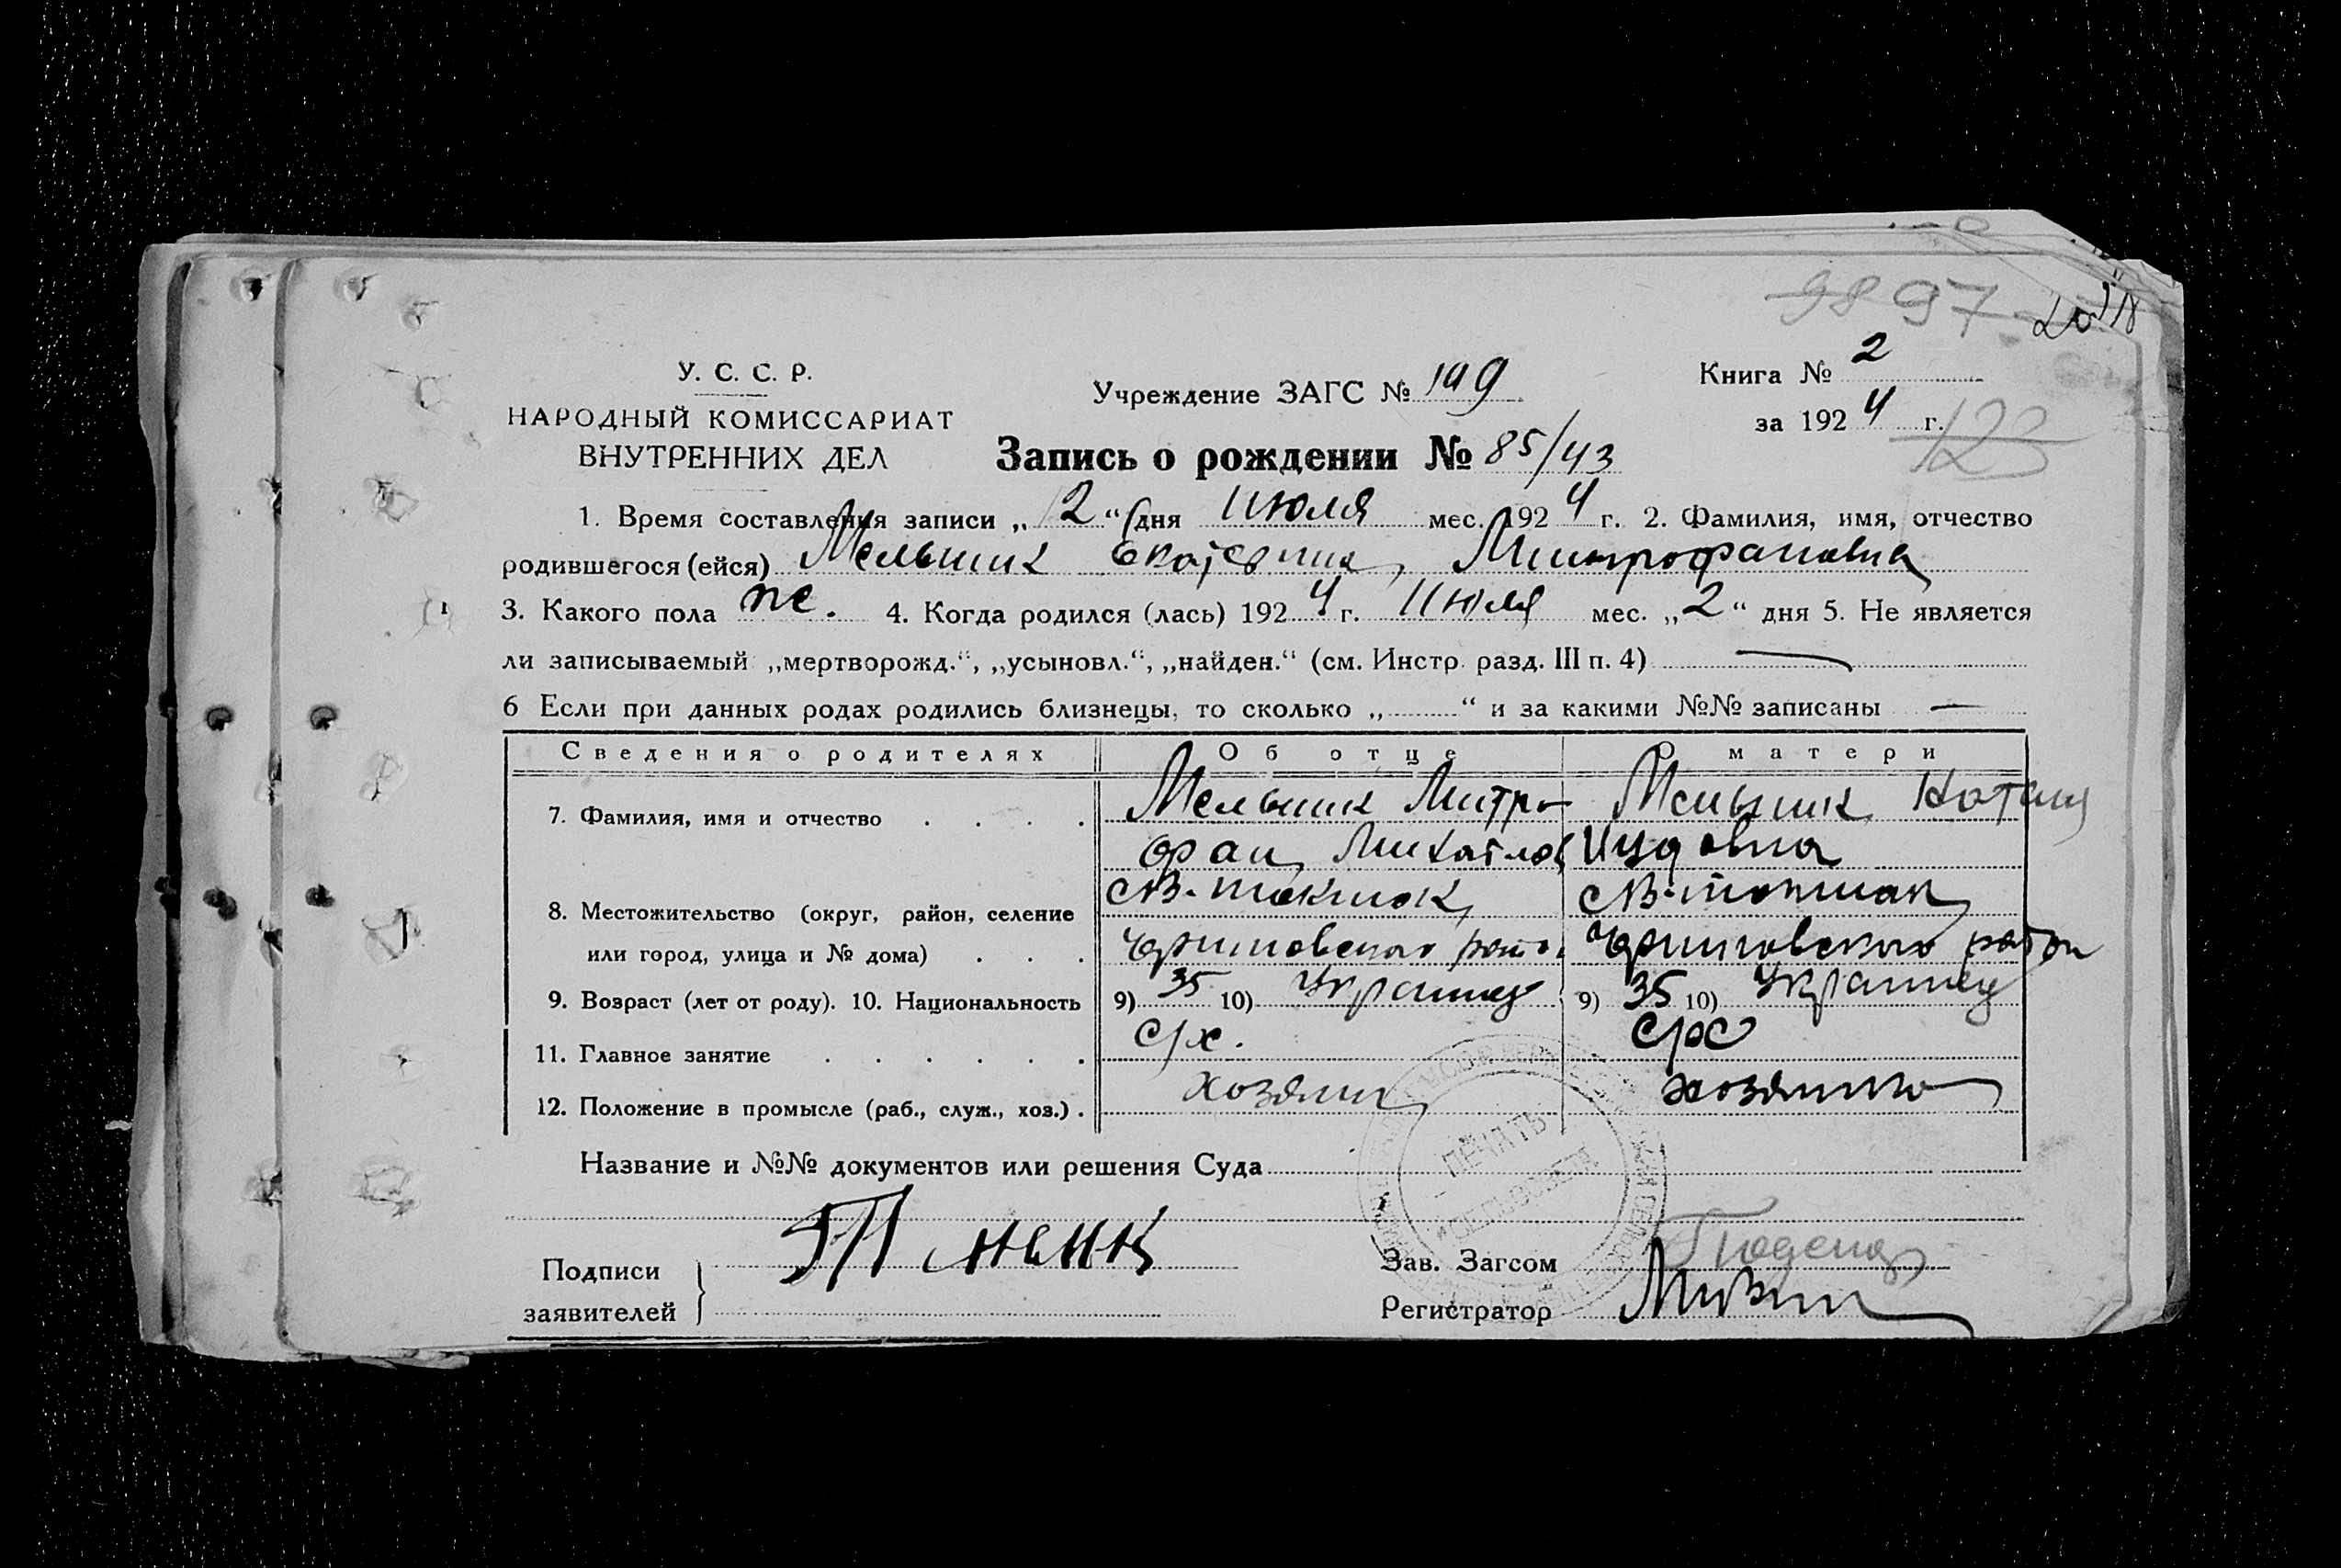 98 97
У. С. С. Р.
НАРОДНЫЙ КОМИССАРИАТ
ВНУТРЕННИХ ДЕЛ
Учреждение ЗАГС № 199
Книга № 2
за 192 4 г.
123
Запись о рождении № 85/43
1. Время составления записи „ 2 “ дня Июля мес. 192 4 г. 2. Фамилия, имя, отчество
родившегося (ейся) Мельник Екатерина, Митрофановна
3. Какого пола же. 4. Когда родился (лась) 192 4 г. Июля мес. „ 2 “ дня 5. Не является
ли записываемый „мертворожд.“, „усыновл.“, „найден.“ (см. Инстр. разд. III п. 4) —
6 Если при данных родах родились близнецы, то сколько „ “ и за какими №№ записаны —
Сведения о родителях Об отце О матери
7. Фамилия, имя и отчество Мельник Митро- Мельник Наталия
фан Михайлов
8. Местожительство (округ, район, селение с В-токмак, с В-токмак,
или город, улица и № дома) Черниговского район Черниговского район
9. Возраст (лет от роду). 10. Национальность 9) 35 10) Украинец 9) 35 10) Украинец
11. Главное занятие с/х. с/х
12. Положение в промысле (раб., служ., хоз.) хозяин хозяйка
Название и №№ документов или решения Суда
ПЕЧАТЬ
СЕЛЬСОВЕТА
Подписи
заявителей
Зав. Загсом
Регистратор